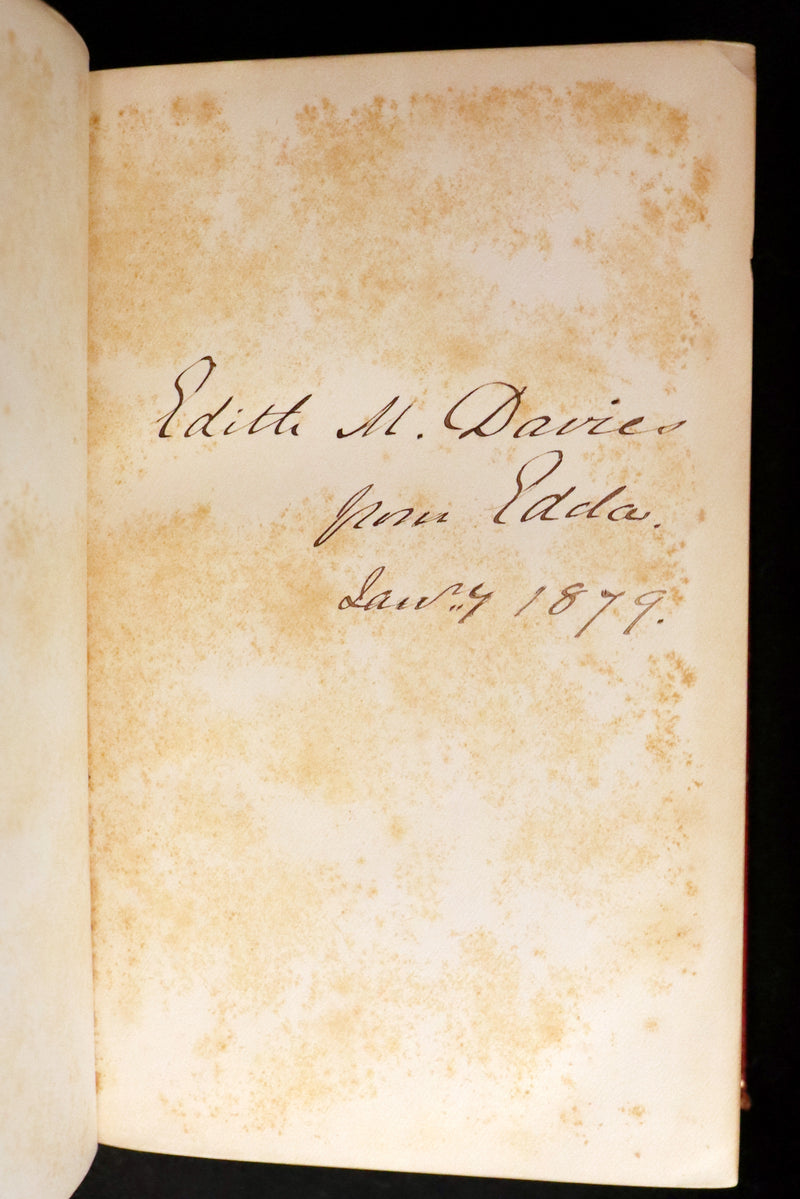 Edith M. Davies
from Edda.
Janry 1879.